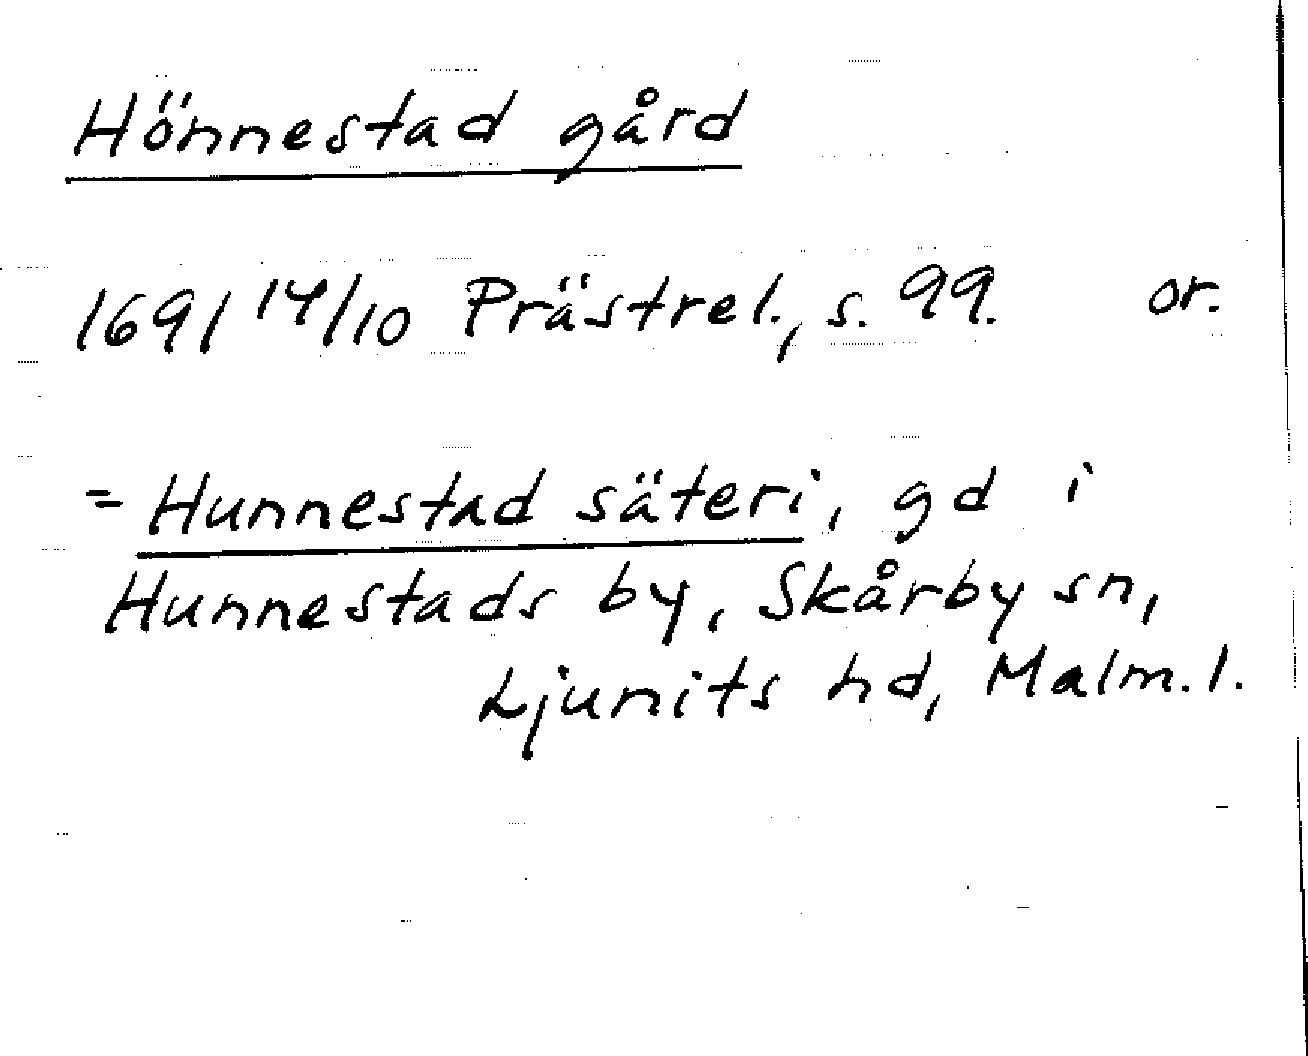 Hönnestad gård
1691 14/10 Prästrel., s. 99. or.
= Hunnestad säteri, gd i
Hunnestads by, Skårby sn,
Ljunits hd, Malm. l.